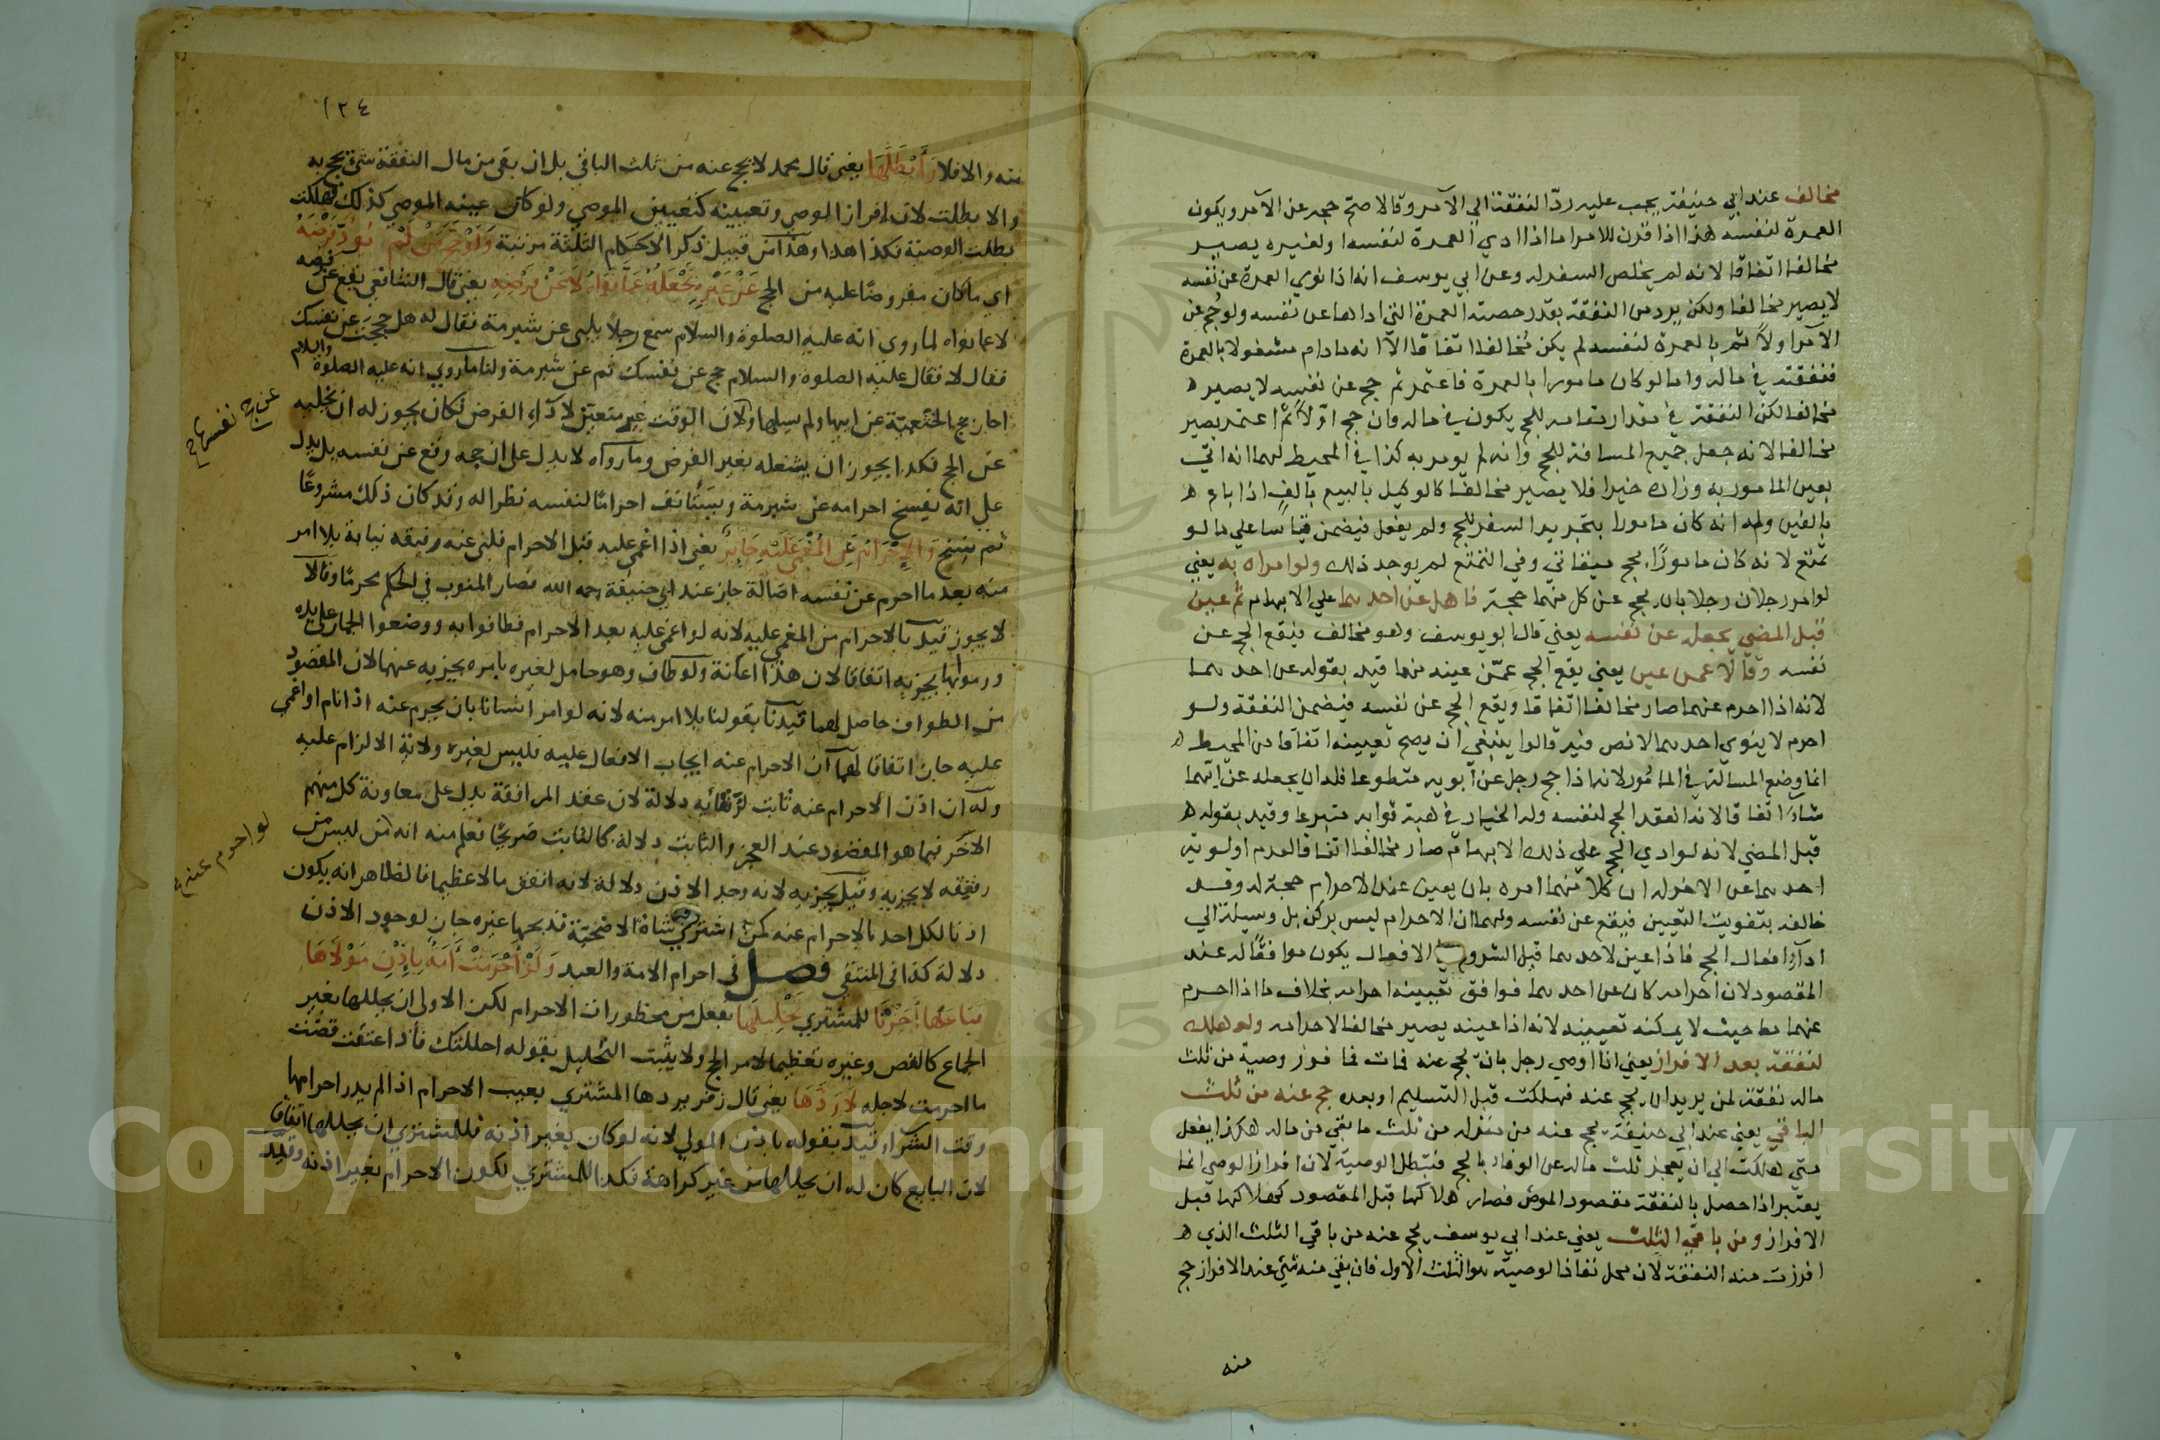 مخالف عند ابي حنيفة يجب عليه ردّ النفقة الي الآمر وقالا صح حجه عن الآمر ويكون
العمرة لنفسه هذا اذا قرن للامر اما اذا ادي العمرة لنفسه او لغيره يصير
مخالفا اتفاقا لانه لم يخلص السفر له وعن ابي يوسف انه اذا نوي العمرة عن نفسه
لا يصير مخالفا ولكن يرد من النفقة بقدر حصته العمرة التي اداها عن نفسه ولو حج عن
الآمر اولاً ثم بالعمرة لنفسه لم يكن مخالفا اتفاقا الا انه مادام مشغولا بالعمرة
فنفقته في ماله واما لو كان مامورا بالعمرة فاعتمر ثم حج عن نفسه لا يصير
مخالفا لكن النفقة في مقدار مقامه للحج يكون في ماله وان حج اوّلا ثم اعتمر يصير
مخالفا لانه جعل جميع المسافة للحج وانه لم يومر به كذا في المحيط لهما انه اتي
بعين المامور به وزاده خيرا فلا يصير مخالفا كالوكيل بالبيع بألف اذا باع
بالفين وله انه كان مامورا بتجريد السفر للحج ولم يفعل فيضمن قياسا علي ما لو
تمتع لانه كان مامورًا بحج ميقاتي وفي التمتع لم يوجد ذلك ولو امراه به يعني
لو امر رجلان رجلا بان يحج عن كل منهما حجة فاهل عن احدهما علي الابهام ثم عين
قبل المضي يجعله عن نفسه يعني قال ابو يوسف وهو مخالف فيقع الحج عن
نفسه وقالا عمن عين يعني يقع الحج عمّن عينه منهما قيد بقوله عن احدهما
لانه اذا احرم عنهما صار مخالفا اتفاقا ويقع الحج عن نفسه فيضمن النفقة ولو
احرم لا ينوي احدهما لا نص فيه قالوا ينبغي ان يصح تعيينه اتفاقا من المحيط
انما وضع المسالة في المامور لانه اذا حج رجل عن أبويه متطوعا فله ان يجعله عن ايّهما
شاء اتفاقا لانه انعقد الحج لنفسه وله الخيار في هبة ثوابه متبرعا وقيد بقوله
قبل المضي لانه لو ادي الحج علي ذلك الابهام صار مخالفا اتفاقا لعدم اولوية
احدهما عن الاخر له ان كلا منهما امره بان يعين عند الاحرام حجة له وقد
خالفه بتفويت التعيين فيقع عن نفسه ولهما ان الاحرام ليس بركن بل وسيلة الي
اداء افعال الحج فاذا عين لاحدهما قبل الشروع في الافعال يكون موافقا له عند
المقصود لان احرامه كان عن احدهما فوافق تعيينه احرامه بخلاف ما اذا احرم
عنهما حيث لا يمكنه تعيينه لانه اذا عينه يصير مخالفا لاحرامه ولو هلك
لنفقة بعد الافراز يعني اذا اوصي رجل بان يحج عنه فمات فافرز وصية من ثلث
ماله نفقة لمن يريد ان يحج عنه فهلكت قبل التسليم او بعده حج عنه من ثلث
الباقي يعني عند ابي حنيفة يحج عنه من منزله من ثلث ما بقي من ماله هكذا يفعل
متي هلكت الي ان يعجز ثلث ماله عن الوفاء بالحج فتبطل الوصية لان افراز الوصي انما
يعتبر اذا حصل بالنفقة مقصود الموصي فصار هلاكها قبل المقصود كهلاكها قبل
الافراز ومن باقي الثلث يعني عند ابي يوسف يحج عنه من باقي الثلث الذي
افرزت منه النفقة لان محل نفاذ الوصية هو الثلث الاول فان بقي منه شئ عند الافراز حج
منه
١٢٤
منه والا فلا وأبطلها يعني قال محمد لا يحج عنه من ثلث الباقي بل ان بقي من مال النفقة شئ يحج به
والا بطلت لان افراز الوصي وتعيينه كتعيين الموصي ولو كان عينه الموصي كذلك فهلكت
بطلت الوصية فكذا هذا وهذا من قبيل ذكر الاحكام الثلثة مرتبة ولو حج من لم يؤد فرضه
اي ما كان مفروضا عليه من الحج عن غيره نجعله عما نواه لا عن فرضه يعني قال الشافعي يقع عن فرضه
لا عما نواه لما روي انه عليه الصلوة والسلام سمع رجلا يلبي عن شبرمة فقال له هل حججت عن نفسك
فقال لا فقال عليه الصلوة والسلام حج عن نفسك ثم عن شبرمة ولنا ما روي انه عليه الصلوة والسلام
اجاز حج الخثعمية عن ابيها ولم يسلها ولان الوقت غير متعين لاداء الفرض فكان يجوز له ان يخليه
عن حج نفسها
عن الحج فكذا يجوز ان يشغله بغير الفرض وما رواه لا يدل على ان حجه وقع عن نفسه بل يدل
على انه يفسخ احرامه عن شبرمة ويستأنف احرامًا لنفسه نظرا له وقد كان ذلك مشروعًا
ثم نسخ والإحرام عن المغمى عليه جايز يعني اذا اغمي عليه قبل الاحرام فلبى عنه رفيقه نيابة بلا امر
منه بعد ما احرم عن نفسه اصالة جاز عند ابي حنيفة رحمه الله فصار المنوب في الحكم محرمًا وقالا
لا يجوز قيد بالاحرام من المغمى عليه لانه لو اغمي عليه بعد الاحرام فطافوا به ووضعوا الجمار على يده
ورموا بها يجزيه اتفاقا لان هذا اعانة ولو طاف وهو حامل لغيره بامره يجزيه عنهما لان المقصود
من الطواف حاصل لهما قيدنا بقولنا بلا امر منه لانه لو امر انسانا بان يحرم عنه اذا نام او اغمي
عليه جاز اتفاقا لهما ان الاحرام عنه ايجاب الافعال عليه فليس لغيره ولاية الالزام عليه
وله ان اذن الاحرام عنه ثابت لرفقائه دلالة لان عقد المرافقة يدل على معاونة كل منهم
الآخر فيما هو المقصود عند العجز والثابت دلالة كالثابت صريحًا فعلم منه انه من ليس من
لو احرم عنه
رفيقه لا يجزيه وقيل يجزيه لانه وجد الاذن دلالة لانه انفق مالا عظيما فالظاهر انه يكون
اذنا لكل احد بالاحرام عنه كمن اشترى شاة الاضحية فذبحها غيره جاز لوجود الاذن
دلالة كذا في المنتقى فصل في احرام الامة والعبد ولو أحرمت أمة بإذن مولاها
فباعها أجزنا للمشتري تحليلها بفعل من محظورات الاحرام لكن الاولى ان يحللها بغير
الجماع كالقص وغيره تعظيما لامر الحج ولا يثبت التحليل بقوله احللتك فاذا اعتقت قضت
ما احرمت لاجله لا ردها يعني قال زفر يردها المشتري بعيب الاحرام اذا لم يدر احرامها
وقت الشراء قيد بقوله باذن المولي لانه لو كان بغير اذنه فللمشتري ان يحللها اتفاقا
لان البايع كان له ان يحللها من غير كراهة فكذا للمشتري لكون الاحرام بغير اذنه وقيد
Copyright © King Saud University